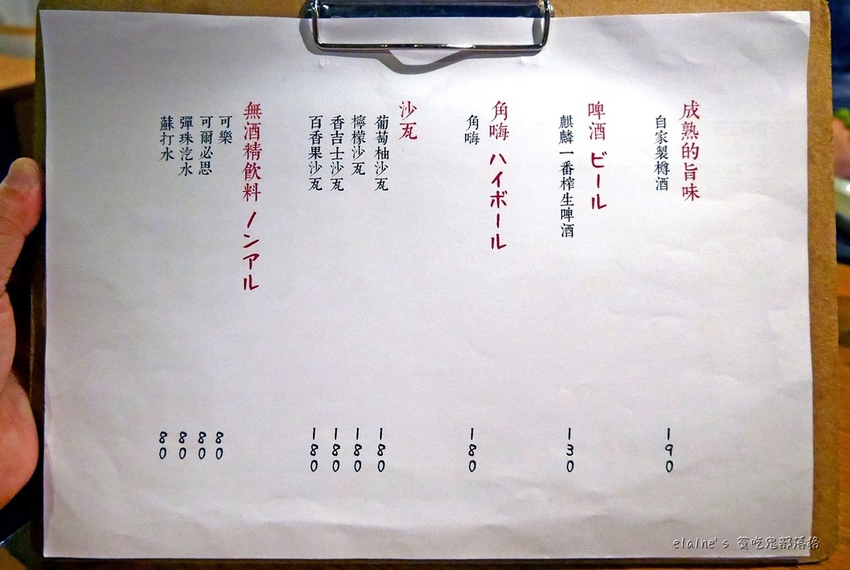 成熟的旨味
自家製樽酒 190
啤酒 ビール
麒麟一番榨生啤酒 130
角嗨 ハイボール
角嗨 180
沙瓦
葡萄柚沙瓦 180
檸檬沙瓦 180
香吉士沙瓦 180
百香果沙瓦 180
無酒精飲料 ノンアル
可樂 80
可爾必思 80
彈珠汽水 80
蘇打水 80
elaine's 貪吃鬼部落格